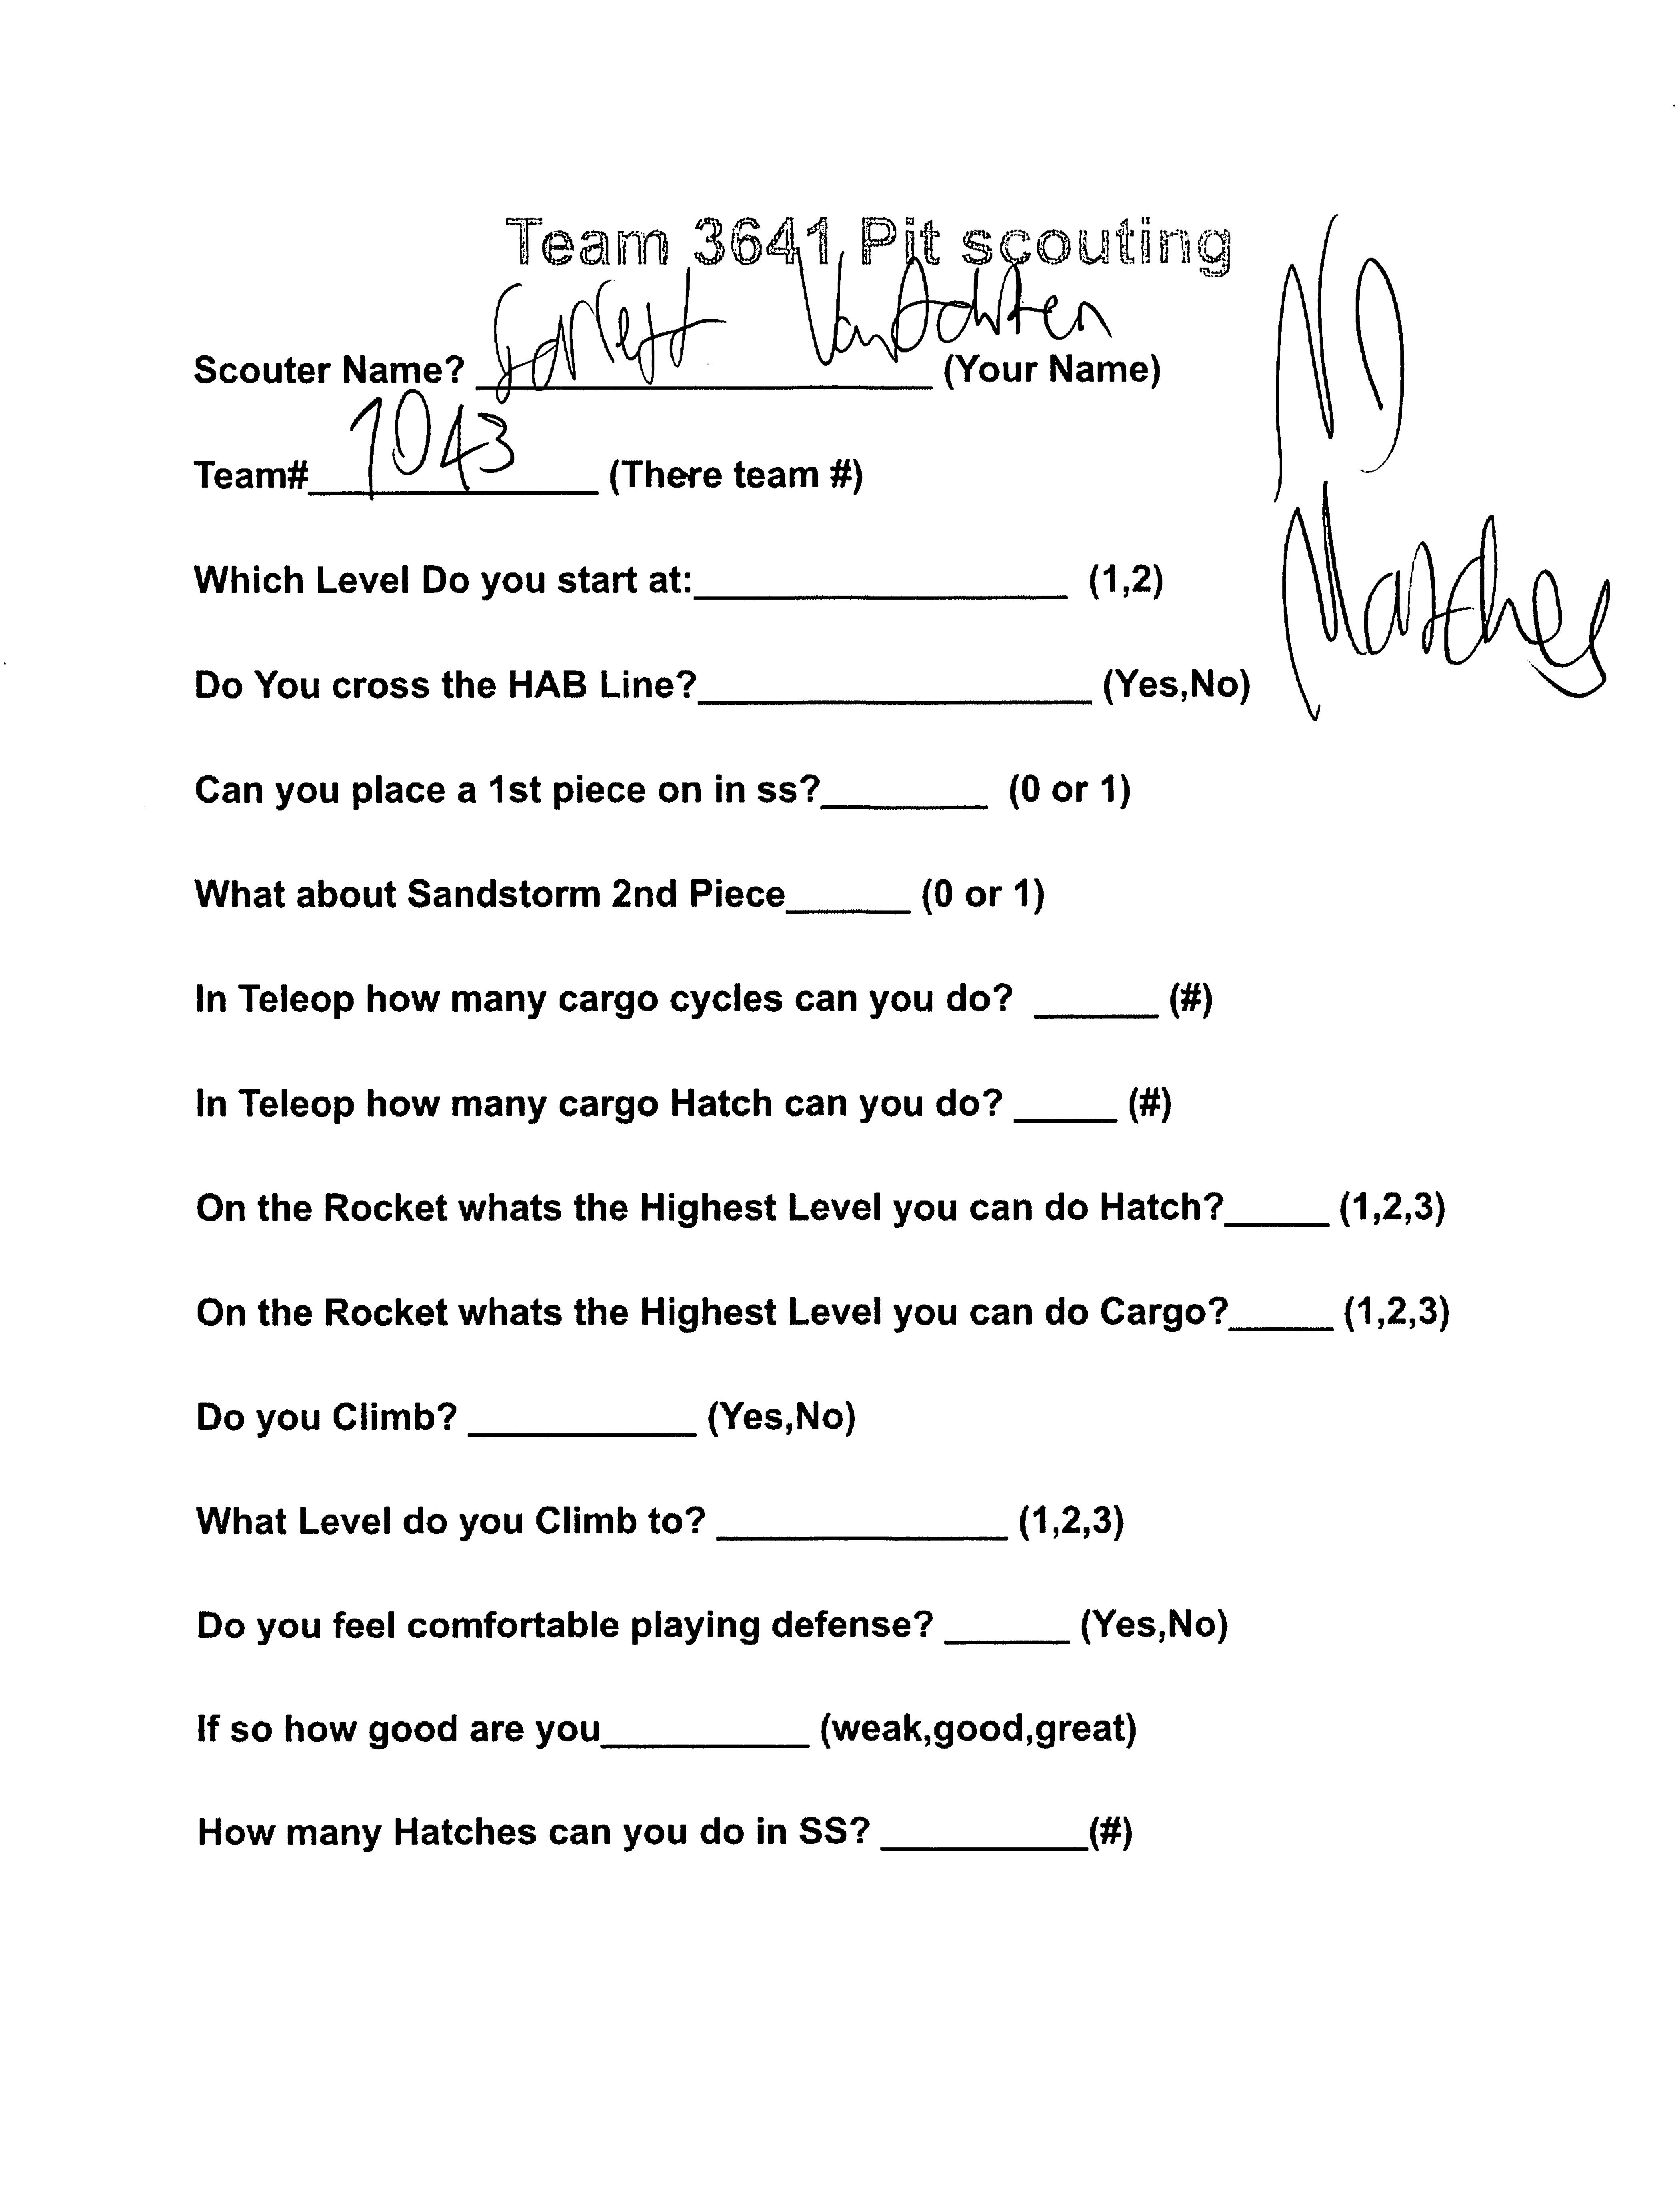 Team 3641 Pit scouting
Scouter Name? Garrett VanAchten (Your Name)
Team# 7043 (There team #)
NO
Matches
Which Level Do you start at:_______________ (1,2)
Do You cross the HAB Line?_______________ (Yes,No)
Can you place a 1st piece on in ss?________ (0 or 1)
What about Sandstorm 2nd Piece______ (0 or 1)
In Teleop how many cargo cycles can you do? ______ (#)
In Teleop how many cargo Hatch can you do? _____ (#)
On the Rocket whats the Highest Level you can do Hatch?_____ (1,2,3)
On the Rocket whats the Highest Level you can do Cargo?_____ (1,2,3)
Do you Climb? ___________ (Yes,No)
What Level do you Climb to? ______________ (1,2,3)
Do you feel comfortable playing defense? ______ (Yes,No)
If so how good are you__________ (weak,good,great)
How many Hatches can you do in SS? __________(#)